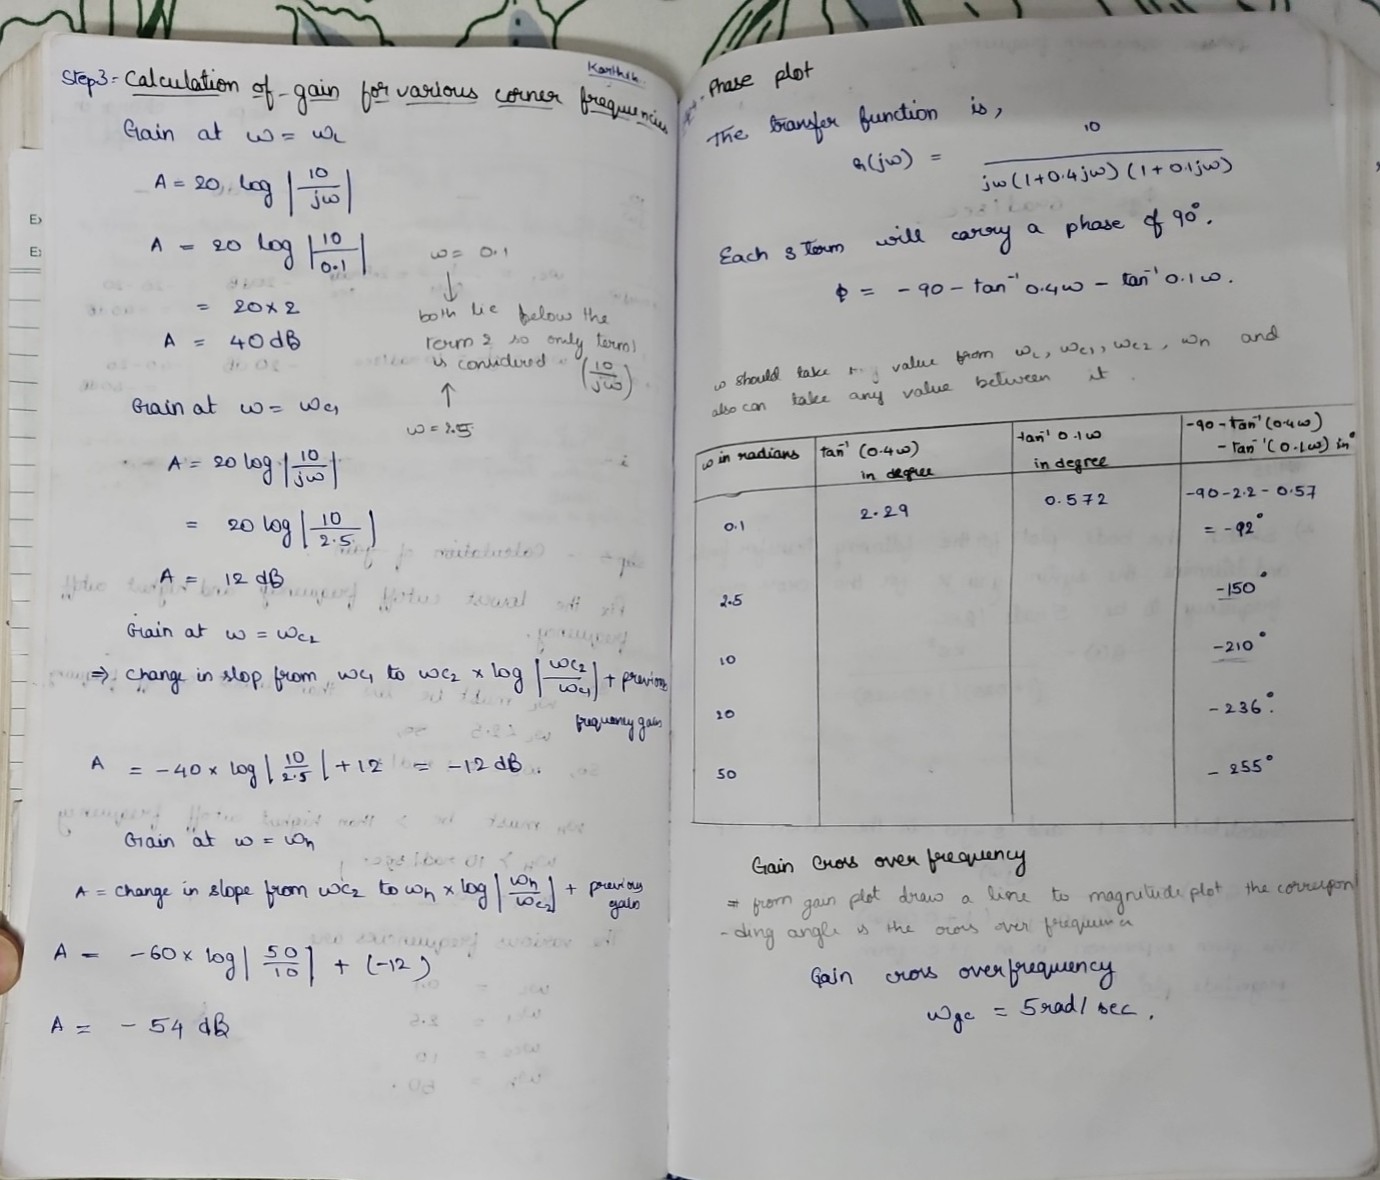 Karthik
Step3:- Calculation of gain for various corner frequencies
Gain at ω = ωL
A = 20 log |10/jω|
A = 20 log |10/0.1|
= 20 x 2
A = 40 dB
ω = 0.1
↓
both lie below the
term 2 so only term1
is considered (10/jω)
↑
ω = 2.5
Gain at ω = ωc1
A = 20 log |10/jω|
= 20 log |10/2.5|
A = 12 dB
Gain at ω = ωc2
⇒ change in slop from ωc1 to ωc2 x log |ωc2/ωc1| + previous
frequency gain
A = -40 x log |10/2.5| + 12 = -12 dB.
Gain at ω = ωh
A = change in slope from ωc2 to ωh x log |ωh/ωc2| + previous
gain
A = -60 x log |50/10| + (-12)
A = - 54 dB
Phase plot
The transfer function is,
G(jω) = 10/jω(1+0.4jω)(1+0.1jω)
Each s term will carry a phase of 90°.
ϕ = -90 - tan⁻¹ 0.4ω - tan⁻¹ 0.1ω.
ω should take value from ωL, ωc1, ωc2, ωh and
also can take any value between it.
ω in radians tan⁻¹ (0.4ω) in degree tan⁻¹ 0.1ω in degree -90-tan⁻¹(0.4ω) -Tan⁻¹(0.1ω) in°
0.1 2.29 0.572 -90-2.2-0.57
= -92°
2.5 -150°
10 -210°
20 -236°.
50 - 255°
Gain cross over frequency
⇒ from gain plot draw a line to magnitude plot the correspon
-ding angle is the cross over frequency
Gain cross over frequency
ωgc = 5 rad/sec.